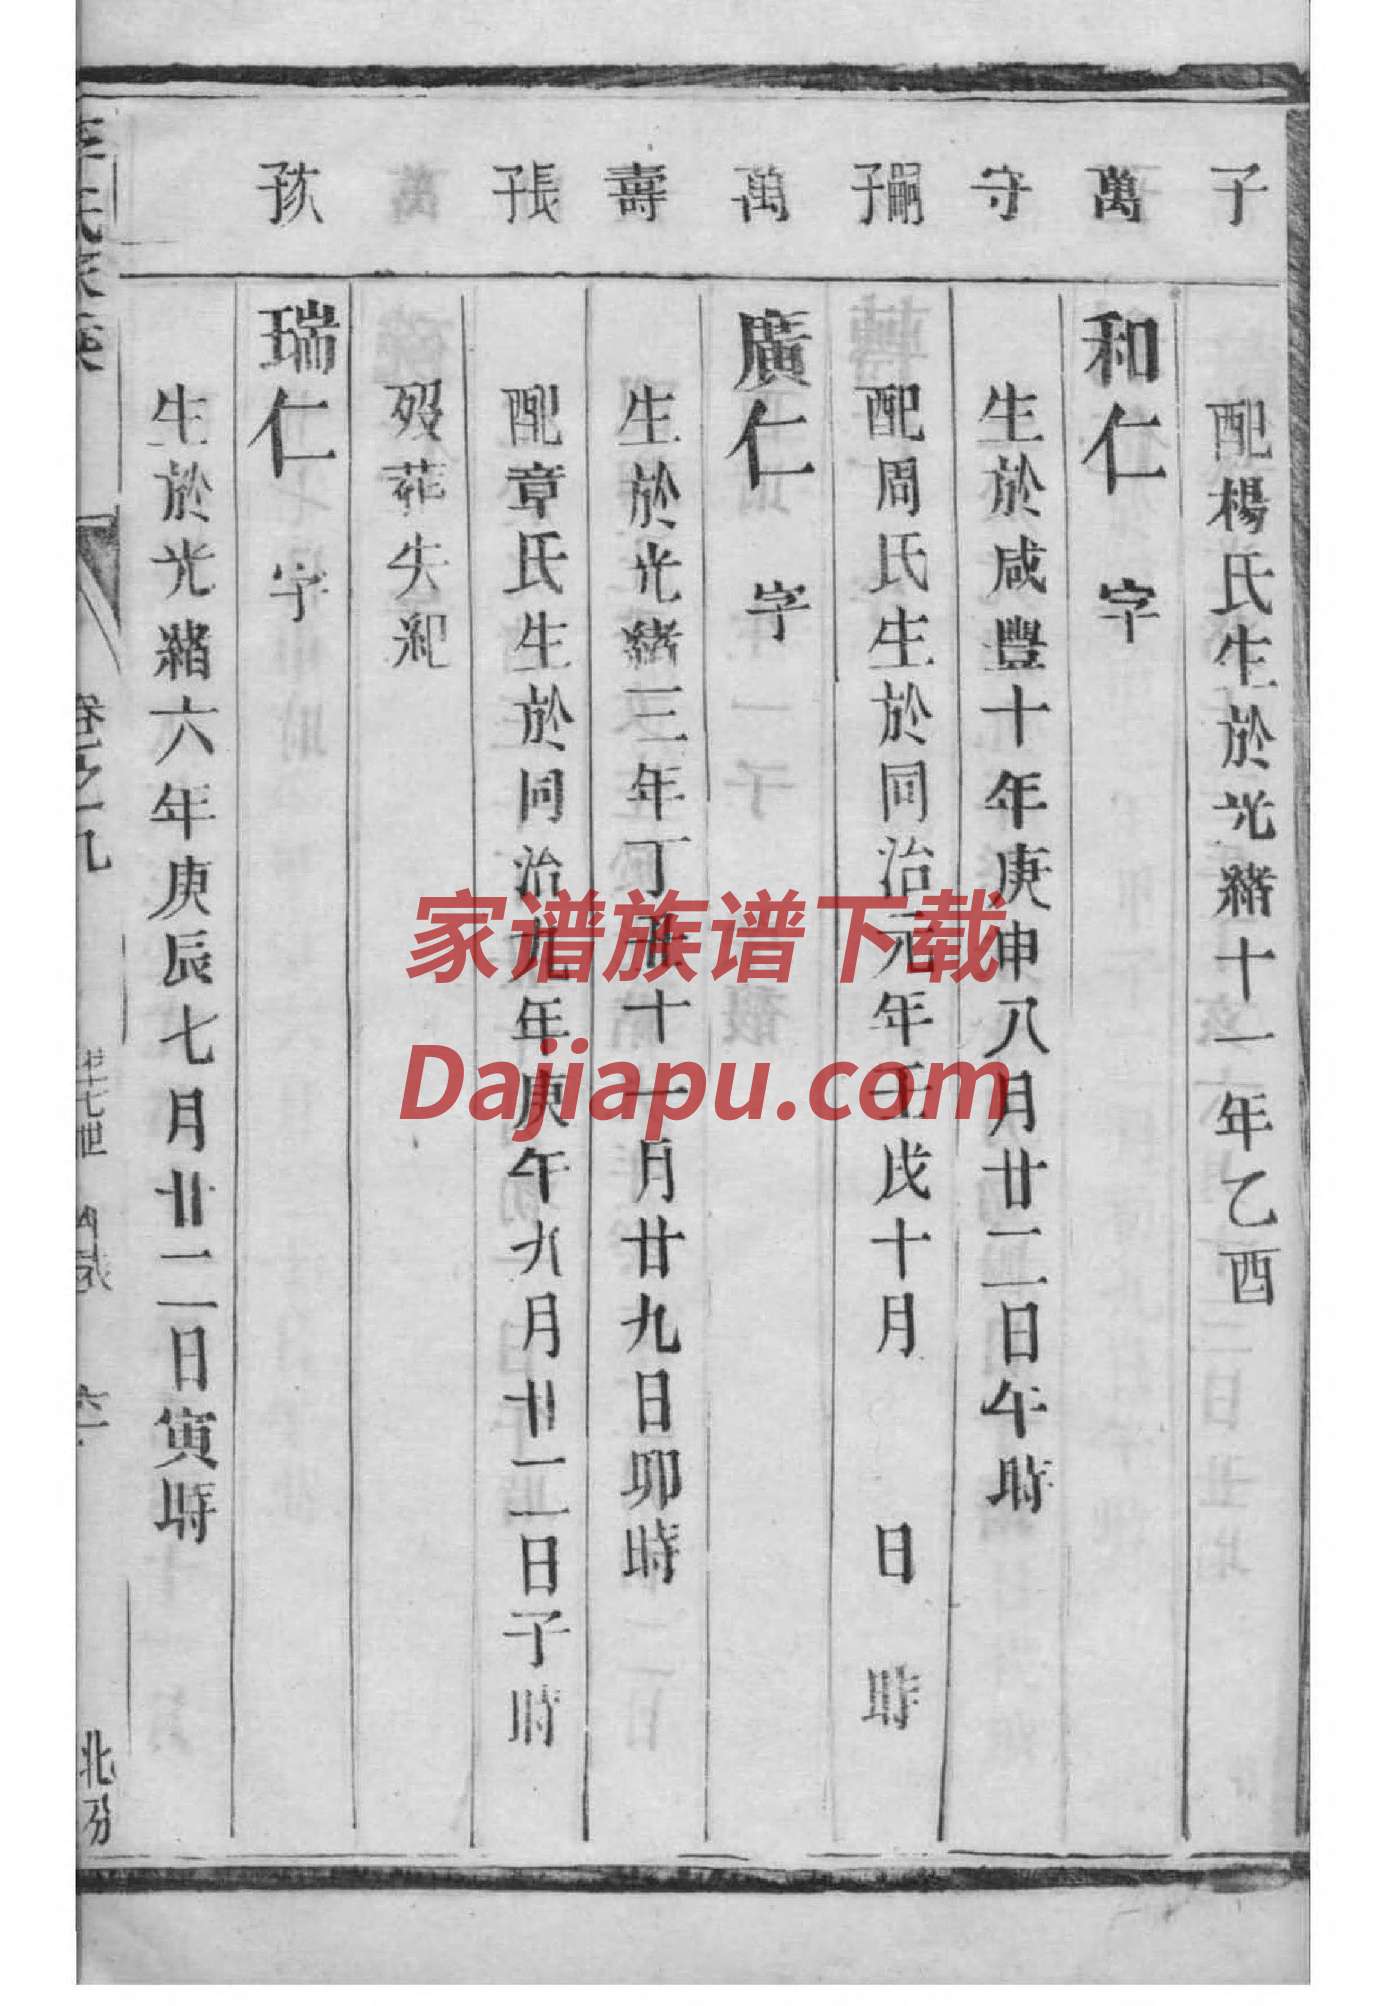 子
萬
守
子嗣
萬
壽
子長
萬
孩
配楊氏生於光緒十一年乙酉
和仁 字
生於咸豐十年庚申八月廿二日午時
配周氏生於同治元年壬戌十月 日 時
廣仁 字
生於光緒三年丁丑十一月廿九日卯時
配章氏生於同治九年庚午九月廿二日子時
歿葬失紀
瑞仁 字
生於光緒六年庚辰七月廿二日寅時
卷之九
北分
家谱族谱下载
Dajiapu.com